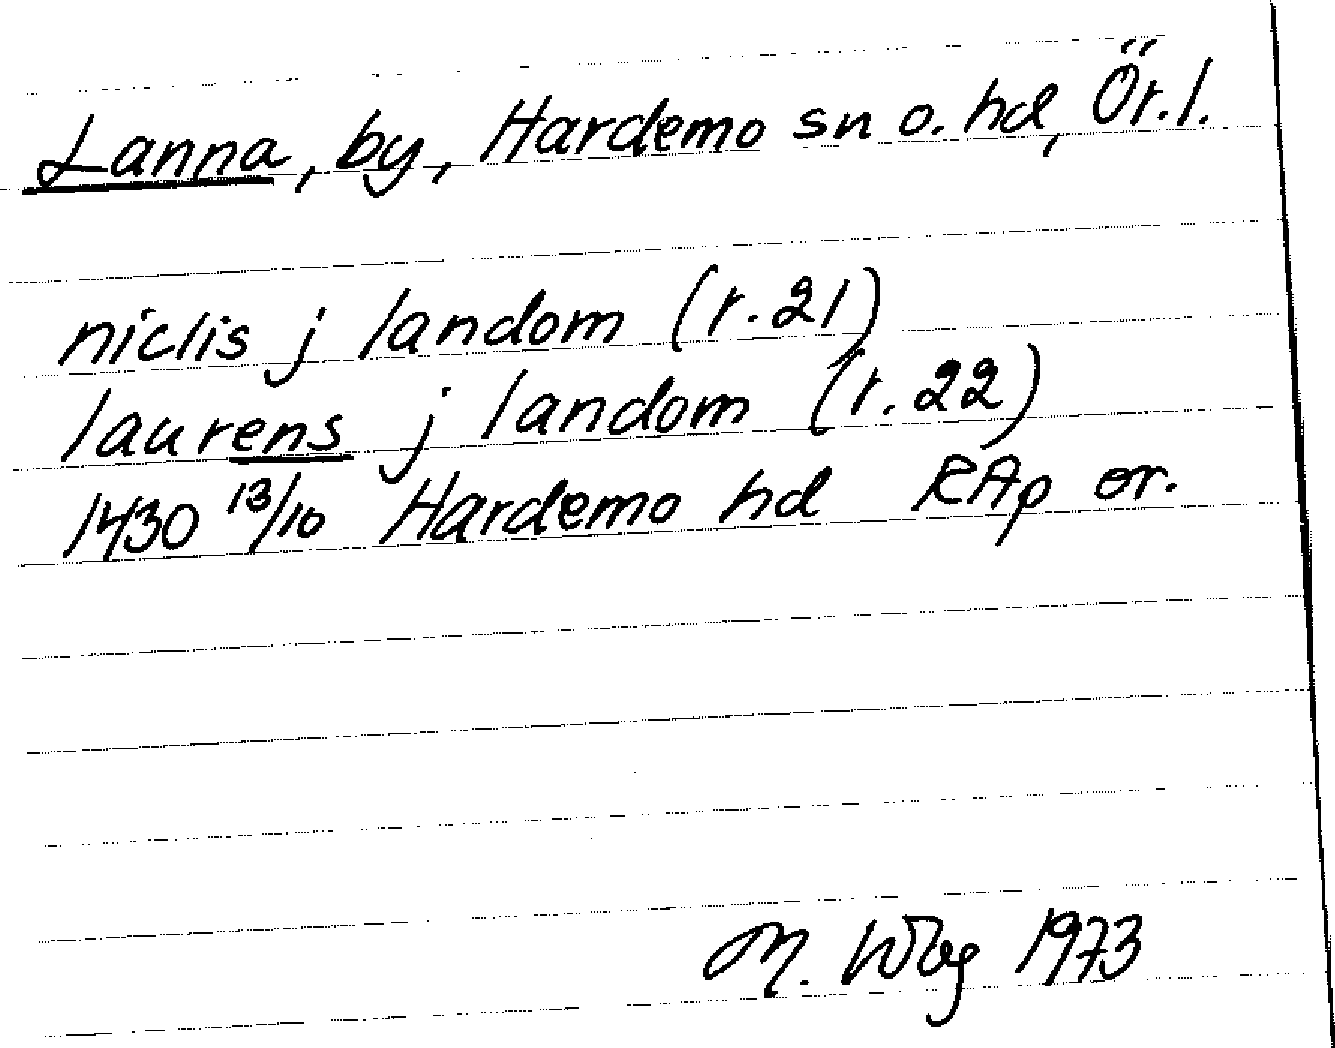 Lanna, by, Hardemo sn o. hd, Ör.l.
niclis j landom (r.21)
laurens j landom (r.22)
1430 13/10 Hardemo hd RAp or.
M. Wbg 1973